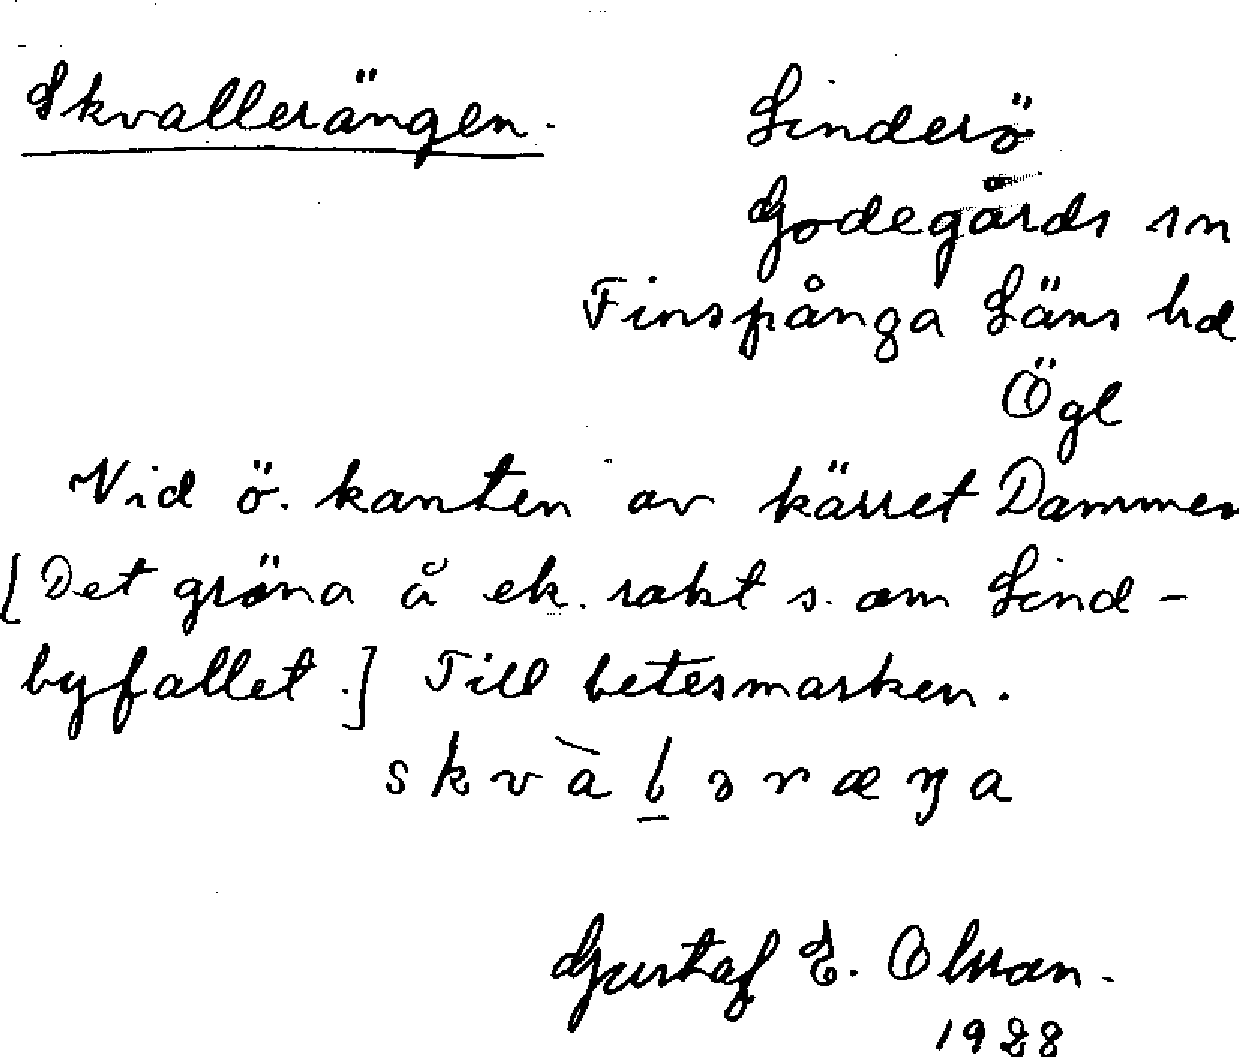 Skvallerängen.
Linderö
Godegårds sn
Finspånga Läns hd
Ögl
Vid ö. kanten av kärret Dammen
[Det gröna å ek. rakt s. om Lind-
byfallet.] Till betesmarken.
skvàlɜræŋa
Gustaf E. Olsson.
1928